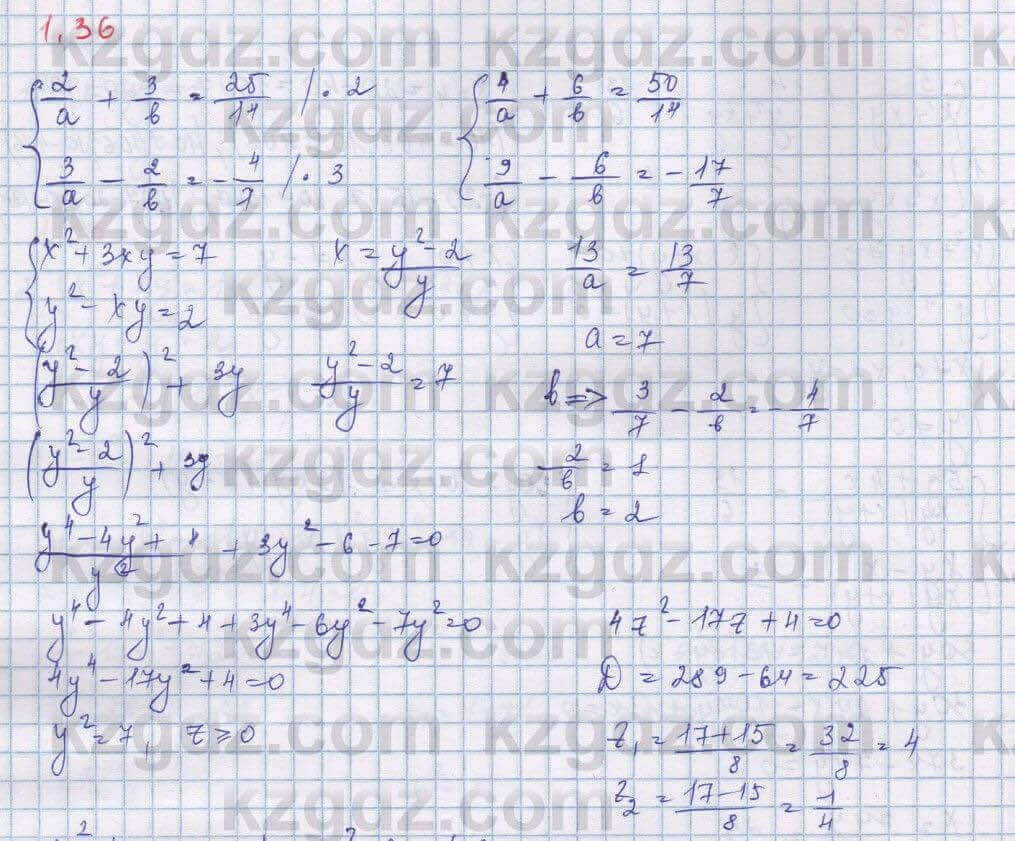 1.36
{ 2/a + 3/b = 25/14 / · 2
3/a - 2/b = - 4/7 / · 3
{ 4/a + 6/b = 50/14
9/a - 6/b = - 17/7
13/a = 13/7
a = 7
b => 3/7 - 2/b = - 4/7
- 2/b = 1
b = 2
{ x² + 3xy = 7
y² - xy = 2
x = (y² - 2)/y
((y² - 2)/y)² + 3y (y² - 2)/y = 7
((y² - 2)/y)² + 3y
(y⁴ - 4y² + 4)/y² + 3y² - 6 - 7 = 0
y⁴ - 4y² + 4 + 3y⁴ - 6y² - 7y² = 0
4y⁴ - 17y² + 4 = 0
y² = z, z ≥ 0
4z² - 17z + 4 = 0
D = 289 - 64 = 225
z₁ = (17 + 15)/8 = 32/8 = 4
z₂ = (17 - 15)/8 = 1/4
kzgdz.com